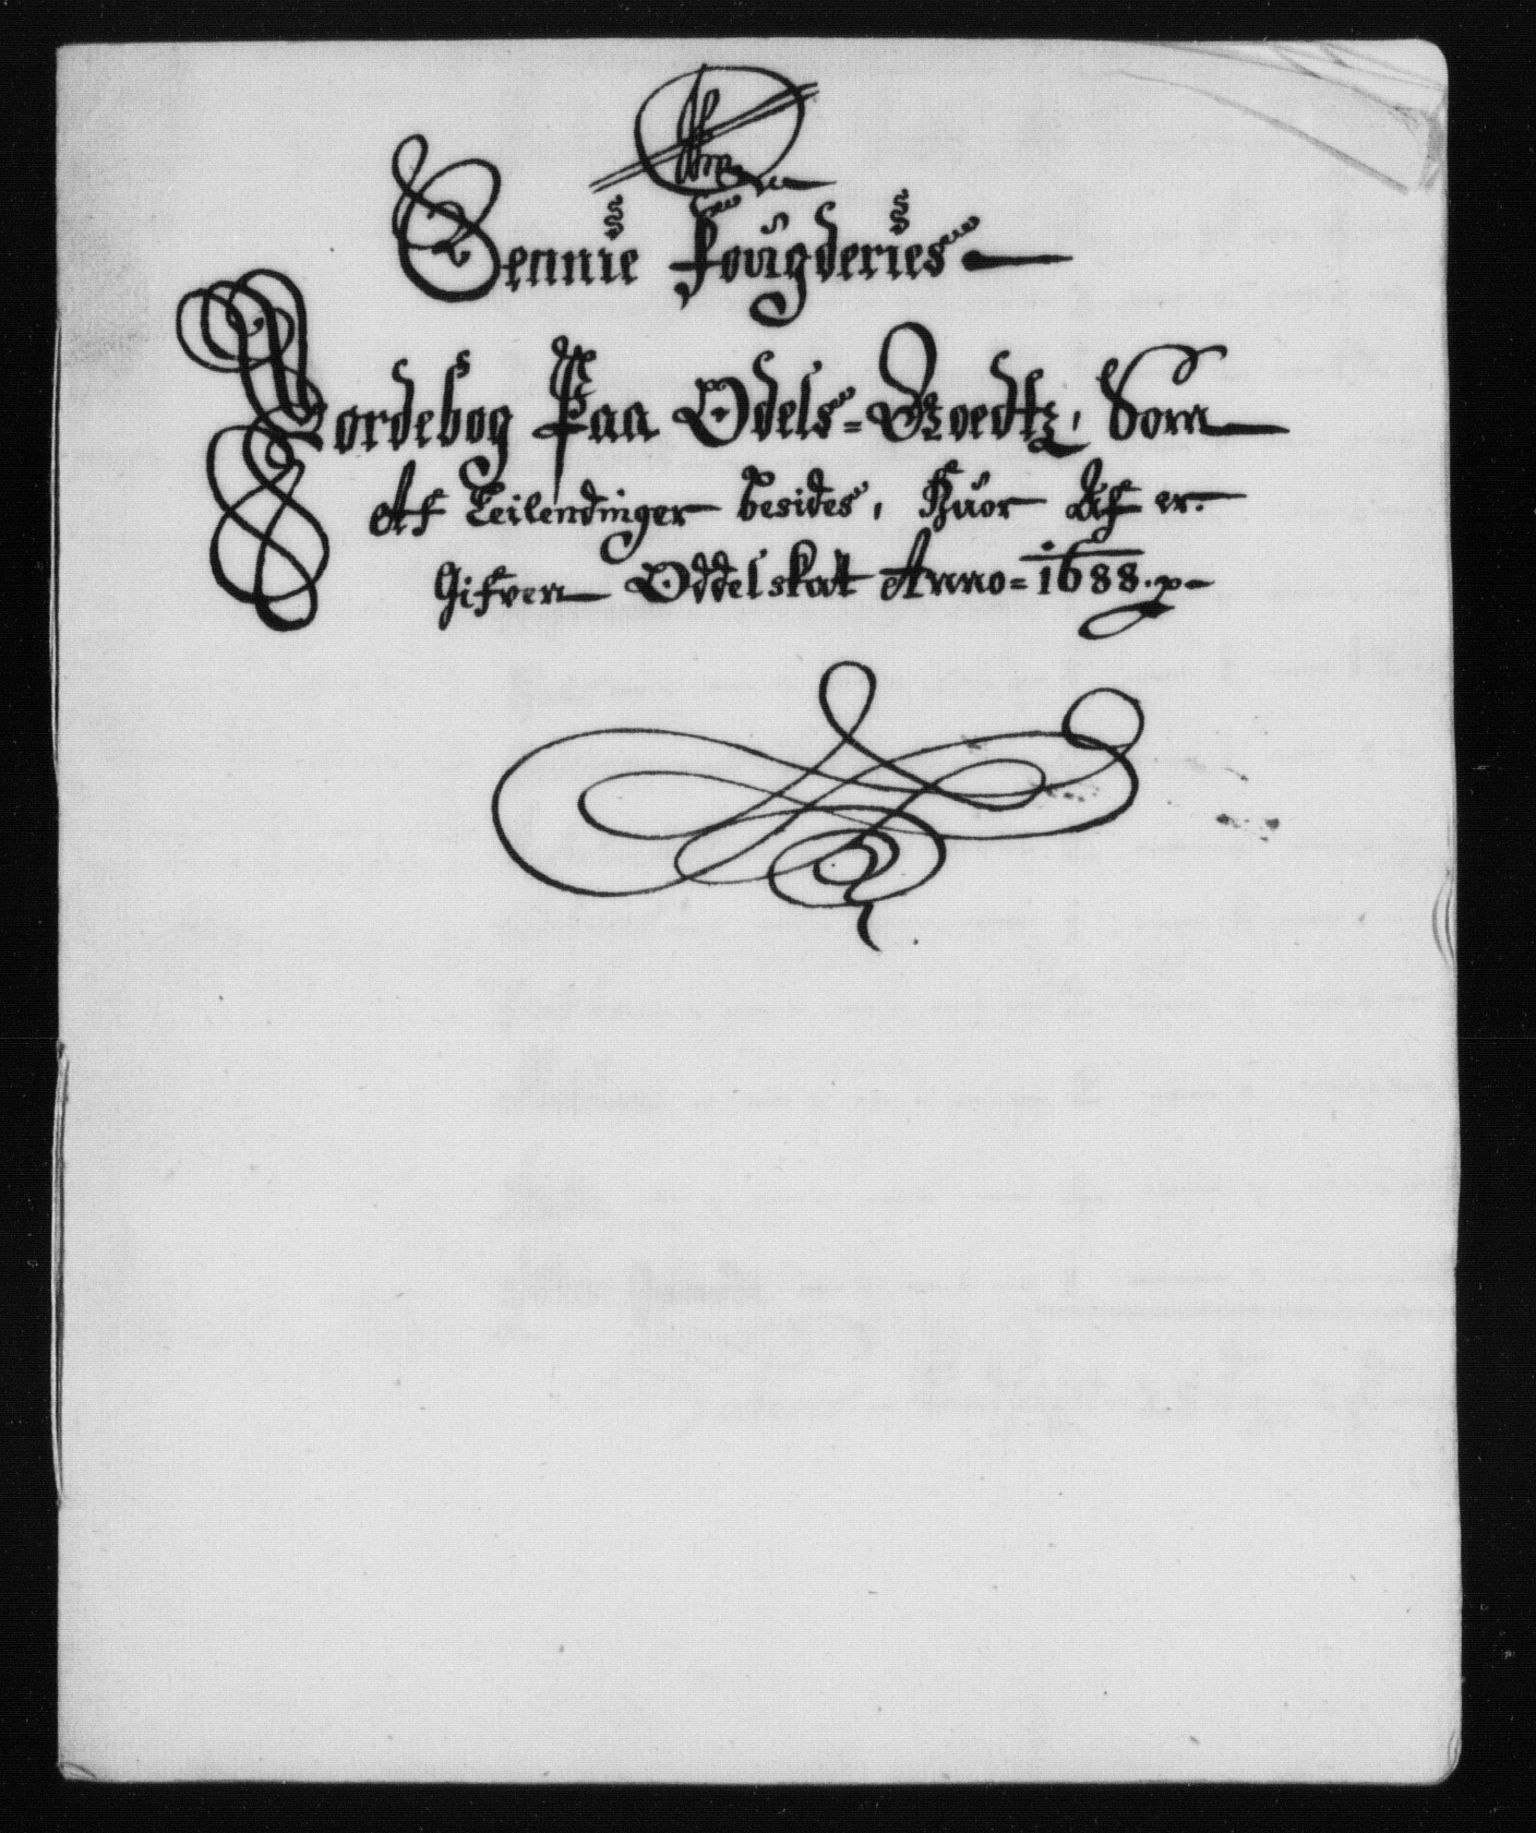 Sennie Fougderies
Jordebog Paa Odels=Goedtz, Som
Af Leilendinger besides, Huor Af er.
Gifven Oddelskat Anno=1688.